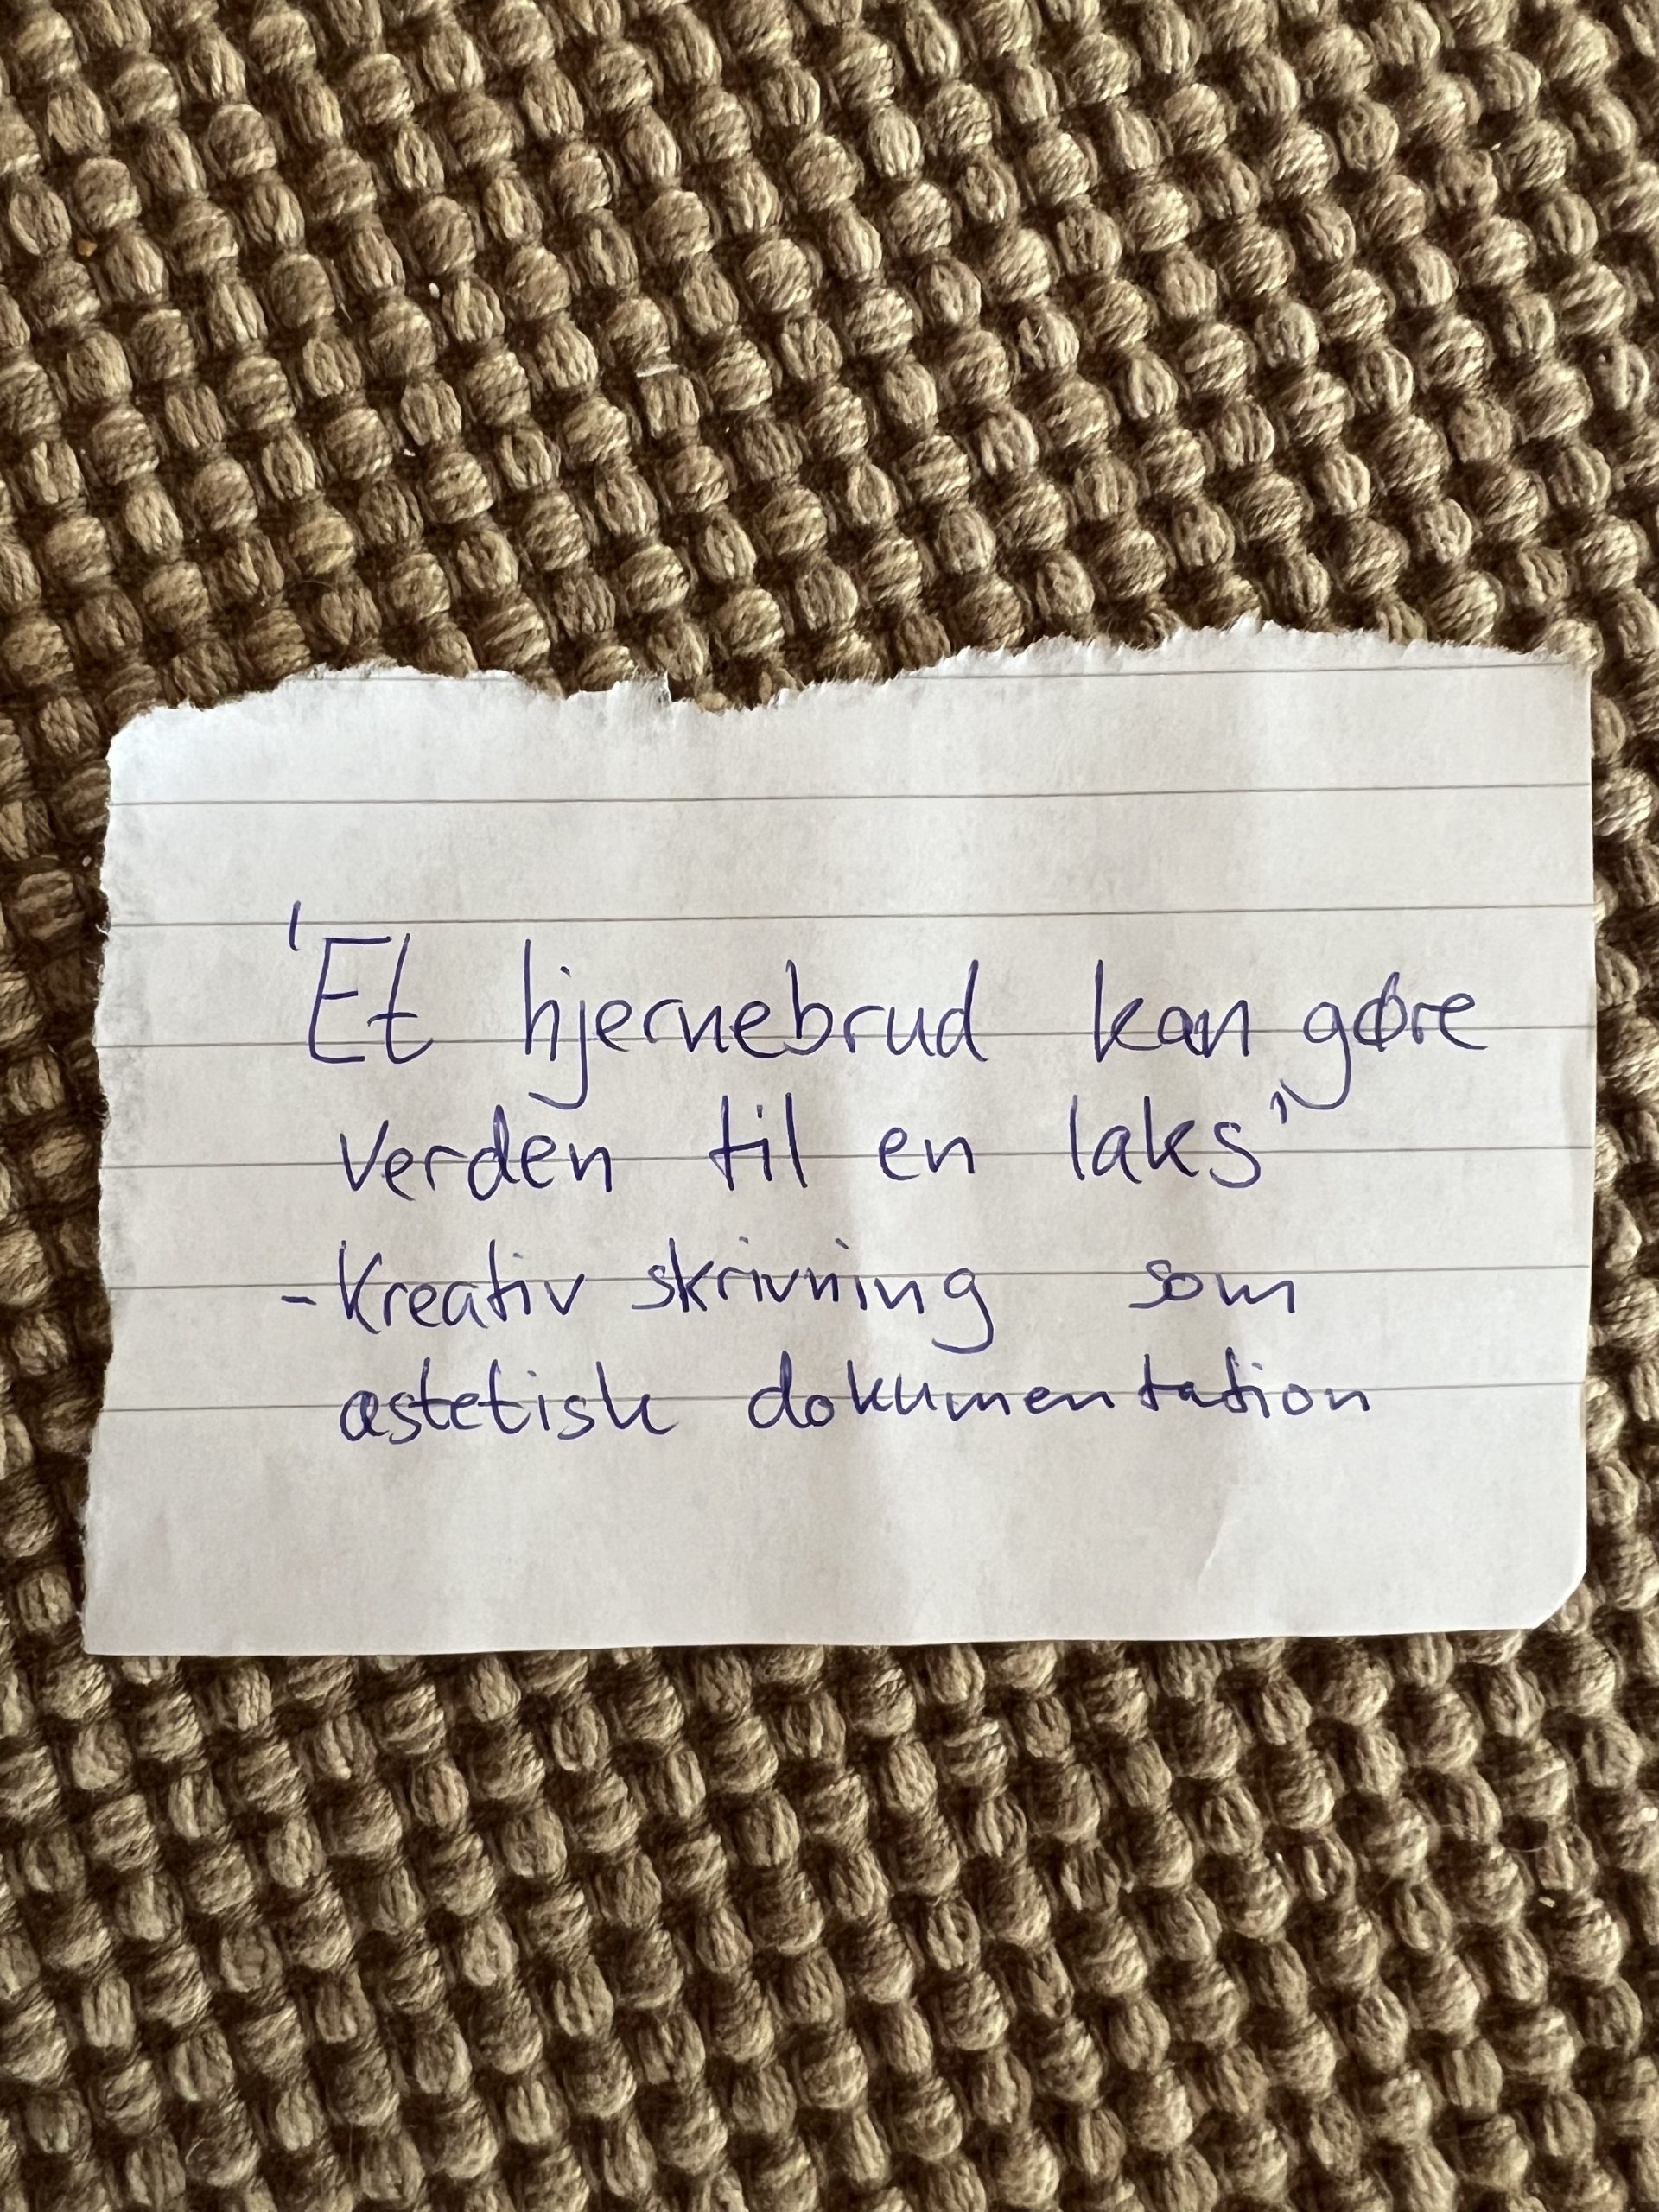 'Et hjernebrud kan gøre
verden til en laks'
- Kreativ skrivning som
æstetisk dokumentation